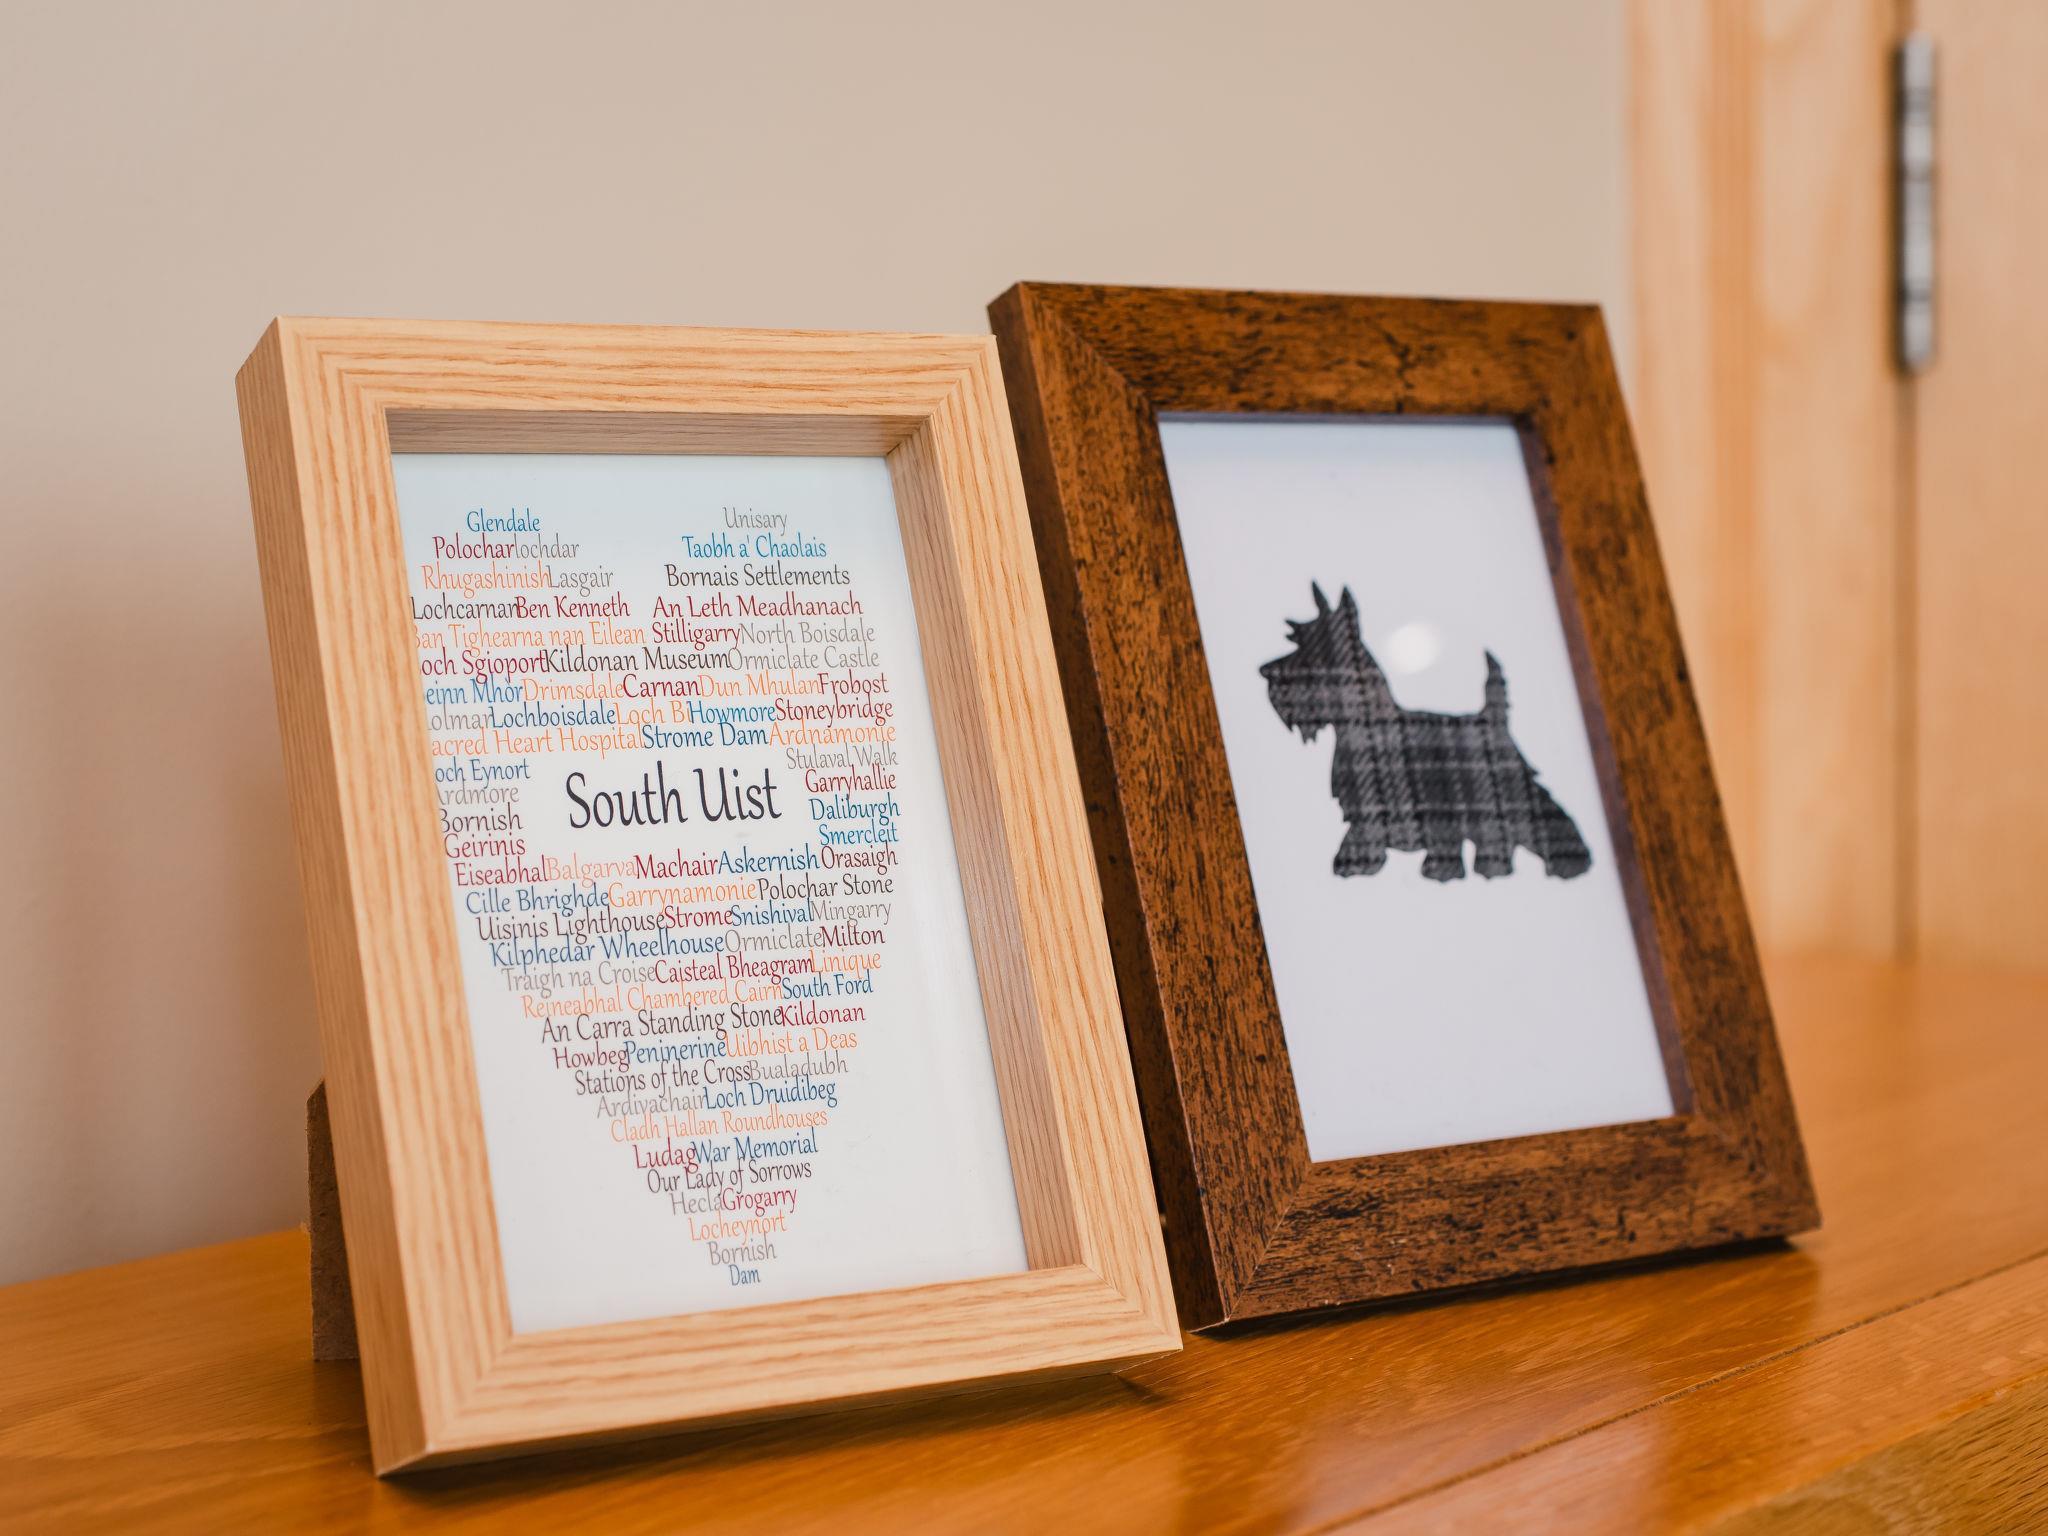 Glendale Unisary
Polochar lochdar Taobh a' Chaolais
Rhugashinish Lasgair Bornais Settlements
Lochcarnan Ben Kenneth An Leth Meadhanach
Ban Tighearna nan Eilean Stilligarry North Boisdale
och Sgioport Kildonan Museum Ormiclate Castle
einn Mhòr Drimsdale Carnan Dun Mhulan Frobost
olman Lochboisdale Loch Bi Howmore Stoneybridge
acred Heart Hospital Strome Dam Ardnamonie
Stulaval Walk
och Eynort Garryhallie
Ardmore South Uist Daliburgh
Bornish Smercleit
Geirinis
Eiseabhal Balgarva Machair Askernish Orasaigh
Cille Bhrighde Garrynamonie Polochar Stone
Uisinis Lighthouse Strome Snishival Mingarry
Kilphedar Wheelhouse Ormiclate Milton
Traigh na Croise Caisteal Bheagram Linique
Reineabhal Chambered Cairn South Ford
An Carra Standing Stone Kildonan
Howbeg Peninerine Uibhist a Deas
Stations of the Cross Bualadubh
Ardivachair Loch Druidibeg
Cladh Hallan Roundhouses
Ludag War Memorial
Our Lady of Sorrows
Hecla Grogarry
Locheynort
Bornish
Dam